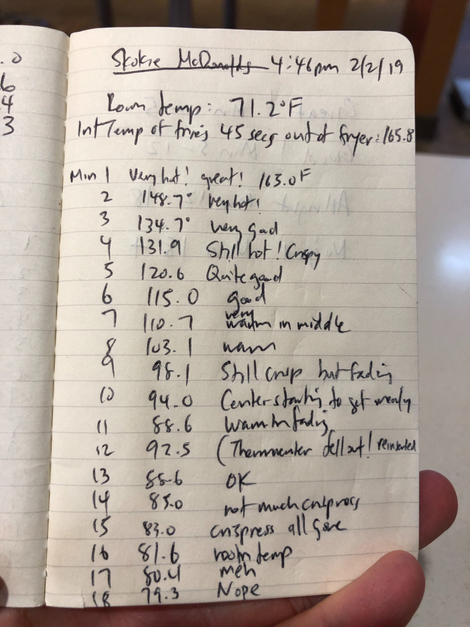 .0
6
4
3
Skokie McDonalds 4:46pm 2/2/19
Room temp: 71.2°F
Int Temp of fries 45 secs out of fryer: 165.8
Min 1 Very hot! great! 163.0°F
2 148.7° very hot!
3 134.7° very good
4 131.9 Still hot! Crispy
5 120.6 Quite good
6 115.0 good
7 110.7 very warm in middle
8 103.1 warm
9 98.1 Still crisp but fading
10 94.0 Center starting to get mealy
11 88.6 Warm fading
12 92.5 (Thermometer fell out! reinserted
13 85.6 OK
14 85.0 not much crispness
15 83.0 crispness all gone
16 81.6 room temp
17 80.4 meh
18 79.3 Nope